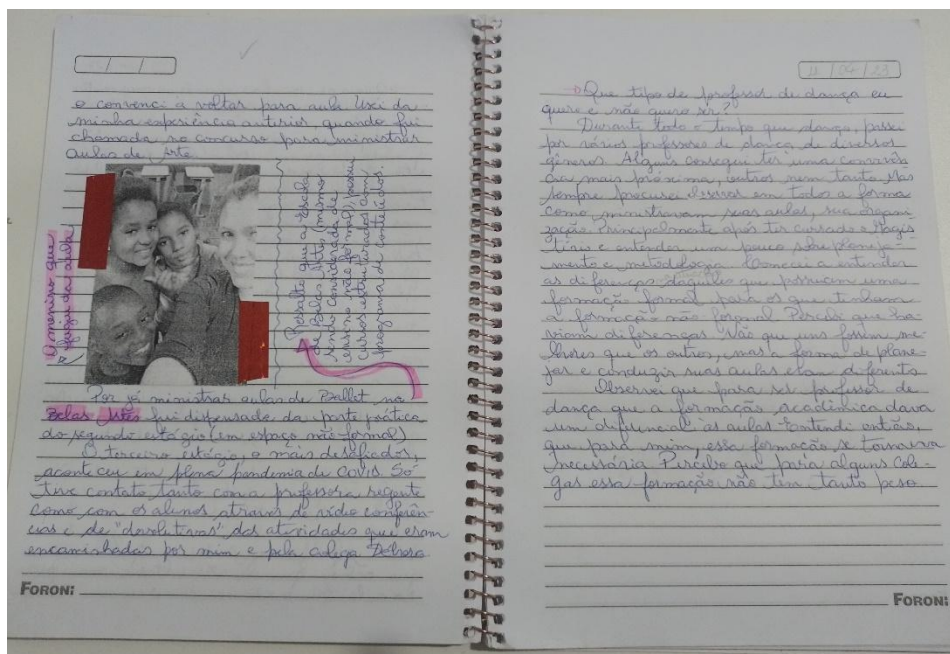 e convenci a voltar para aula. Usei da
minha experiência anterior, quando fui
chamada no concurso para ministrar
aulas de Arte.
O menino que
fugia da aula
Ressalto que a Escola
de Belas Artes, (mesmo
sendo considerada de
ensino não formal), possui
cursos estruturados com
programa de conteúdos.
Por já ministrar aulas de Ballet na
Belas Artes fui dispensada da parte prática
do segundo estágio (em espaço não-formal)
O terceiro estágio, o mais desafiador,
aconteceu em plena pandemia de COVID. Só
tive contato tanto com a professora regente
como com os alunos através de vídeo conferên-
cias e de "devolutivas" das atividades que eram
encaminhadas por mim e pela colega Débora
FORONI
/ 04 / 23
Que tipo de professor de dança eu
quero e não quero ser?
Durante todo o tempo que danço, passei
por vários professores de dança de diversos
gêneros. Alguns consegui ter uma convivên
cia mais próxima, outros nem tanto. Mas
sempre procurei observar em todos a forma
como ministravam suas aulas, sua organi
zação. Principalmente após ter cursado o Magis
tério e entender um pouco sobre planeja-
mento e metodologia. Comecei a entender
as diferenças daqueles que possuem uma
formação formal para os que tinham
a formação não formal. Percebi que ha-
viam diferenças, não que uns fossem me-
lhores que os outros, mas a forma de plane-
jar e conduzir suas aulas eram diferente
Observei que para ser professor de
dança que a formação acadêmica dava
um diferencial as aulas. Entendi então,
que para mim, essa formação se tornava
necessária. Percebo que para alguns cole-
gas essa formação não tem tanto peso
FORONI